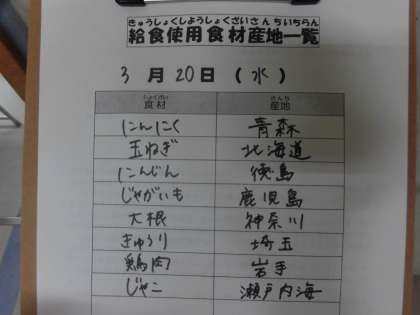 きゅうしょくしようしょくざいさんちいちらん
給食使用食材産地一覧
3月20日(水)
しょくざい さんち
食材 産地
にんにく 青森
玉ねぎ 北海道
にんじん 徳島
じゃがいも 鹿児島
大根 神奈川
きゅうり 埼玉
鶏肉 岩手
じゃこ 瀬戸内海